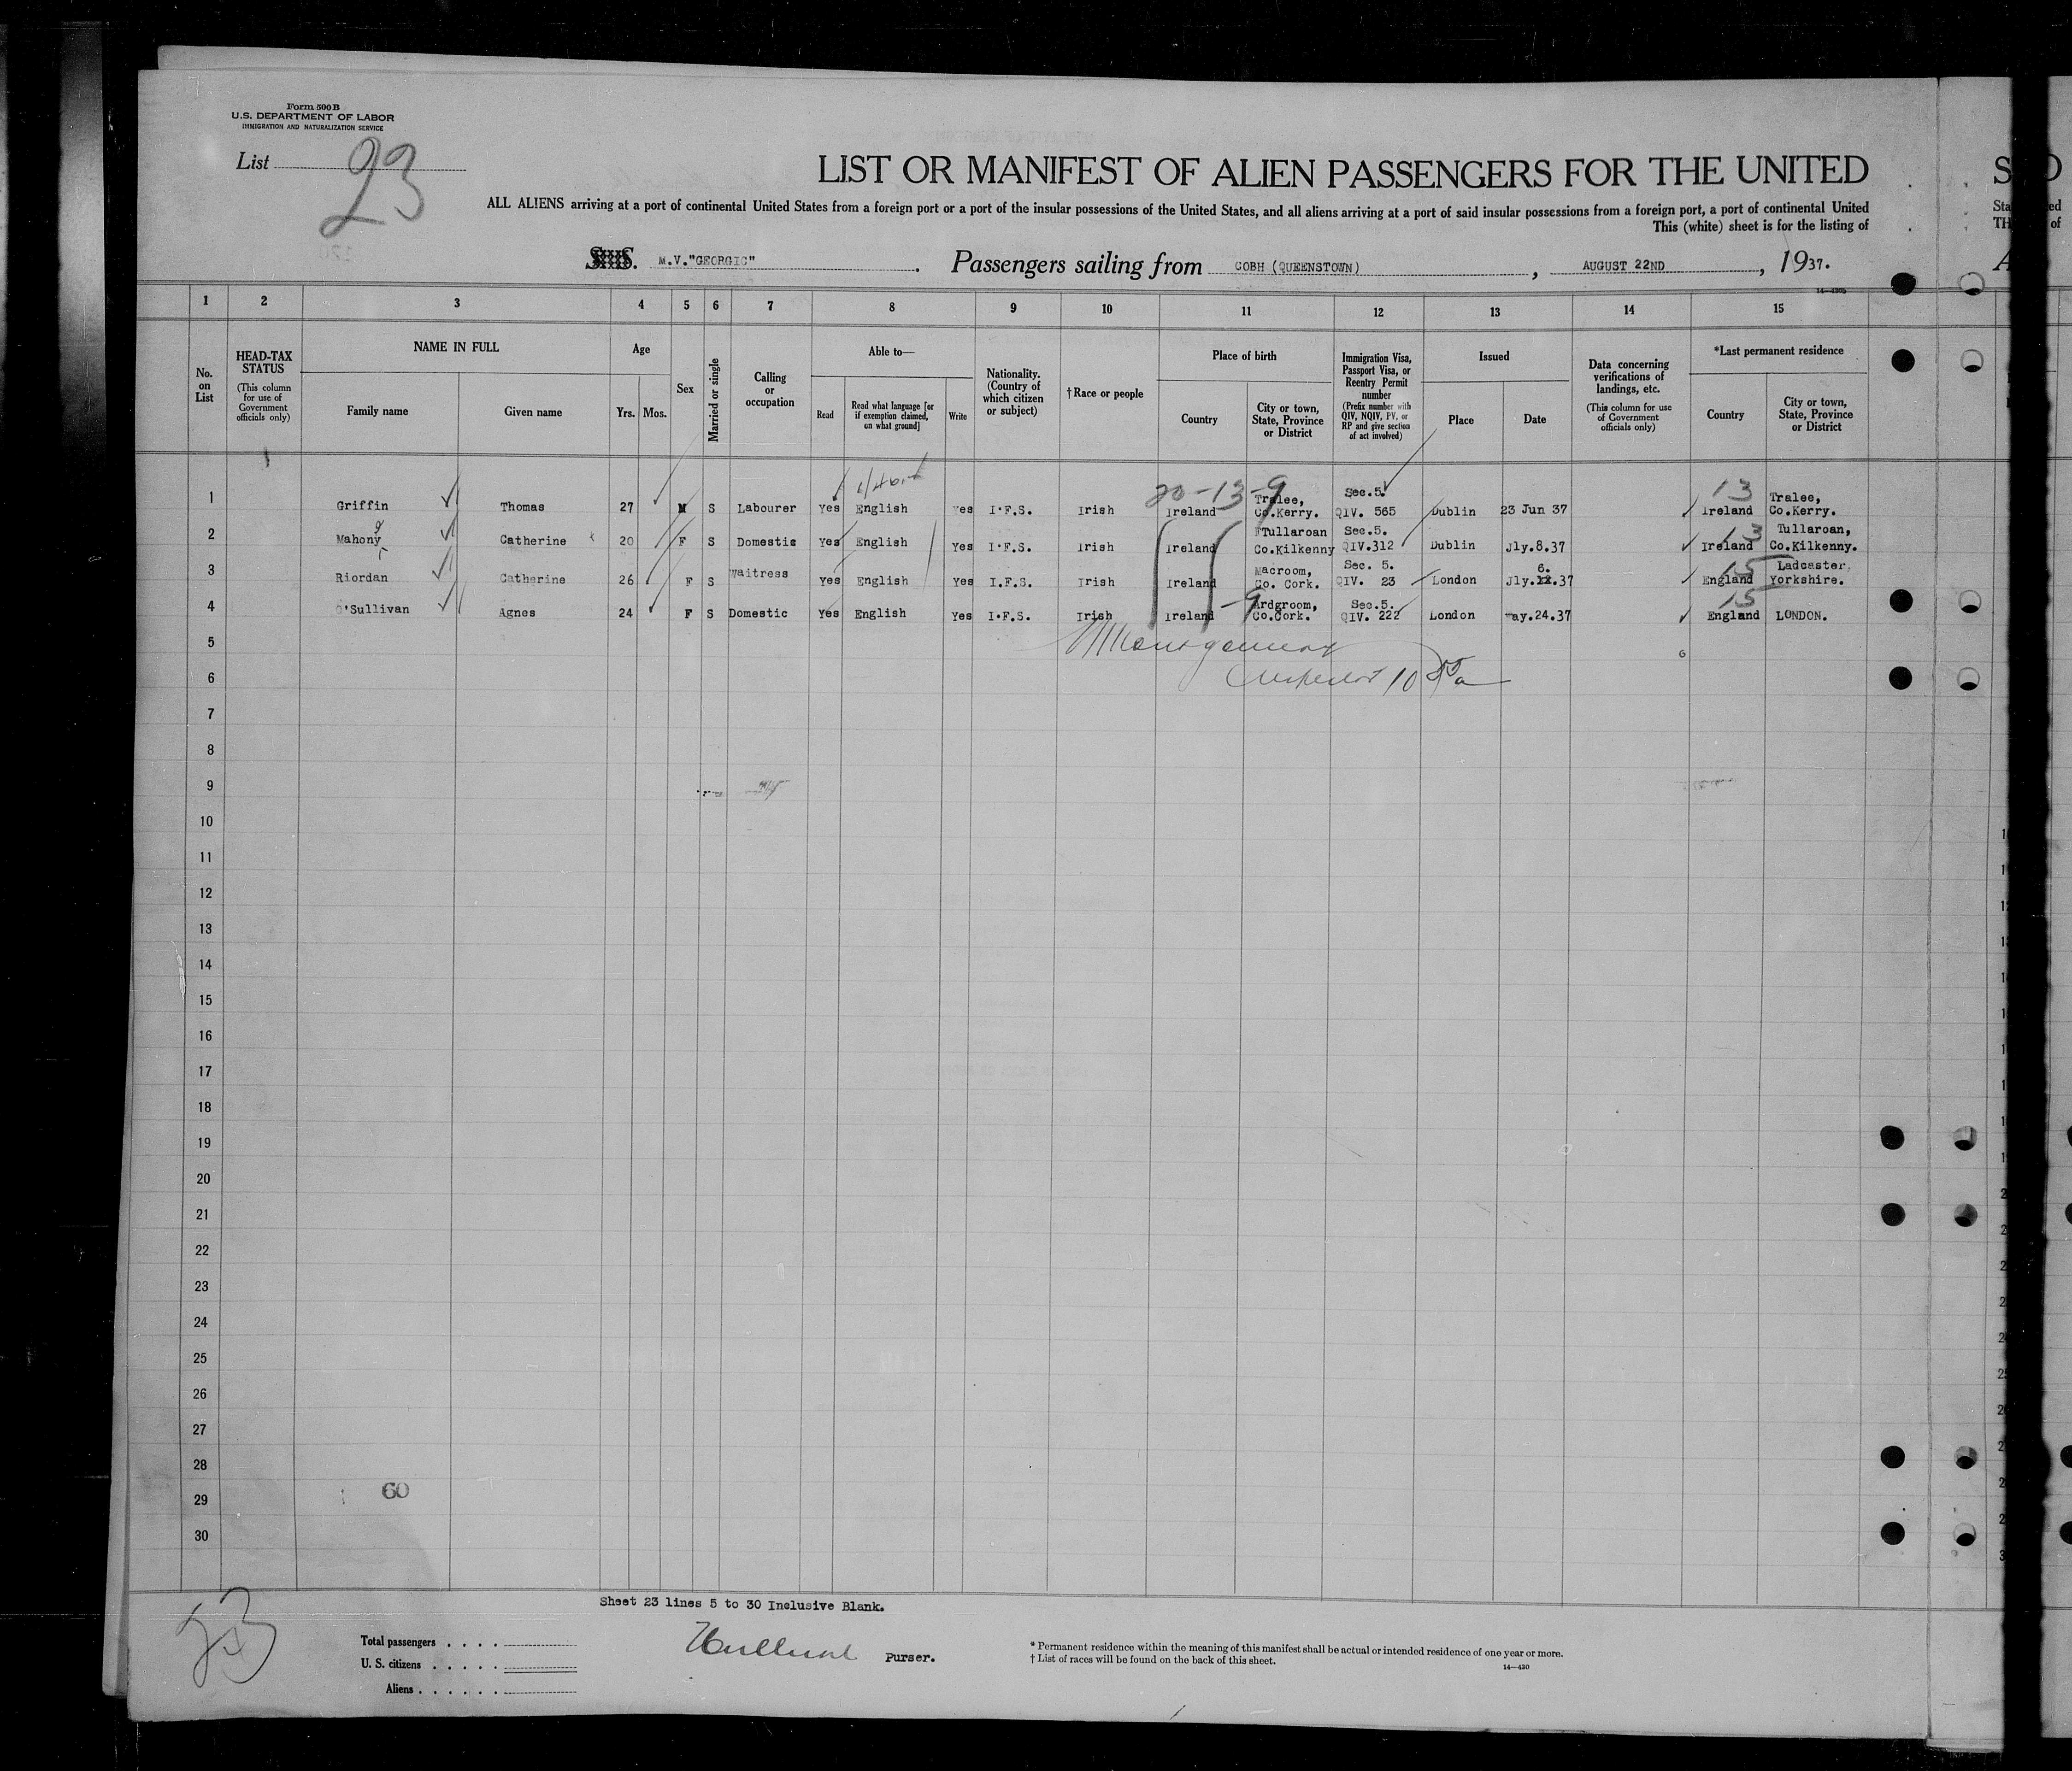 Form 500B
U.S. DEPARTMENT OF LABOR
IMMIGRATION AND NATURALIZATION SERVICE
List 23
LIST OR MANIFEST OF ALIEN PASSENGERS FOR THE UNITED
ALL ALIENS arriving at a port of continental United States from a foreign port or a port of the insular possessions of the United States, and all aliens arriving at a port of said insular possessions from a foreign port, a port of continental United
This (white) sheet is for the listing of
S.S. M.V."GEORGIC". Passengers sailing from COBH (QUEENSTOWN), AUGUST 22ND, 1937.
1 2 3 4 5 6 7 8 9 10 11 12 13 14 15
No. on List
HEAD-TAX STATUS
(This column for use of Government officials only)
NAME IN FULL
Family name Given name
Age
Yrs. Mos.
Sex
Married or single
Calling or occupation
Able to—
Read
Read what language [or if exemption claimed, on what ground]
Write
Nationality. (Country of which citizen or subject)
†Race or people
Place of birth
Country
City or town, State, Province or District
Immigration Visa, Passport Visa, or Reentry Permit number
(Prefix number with QIV, NQIV, PV, or RP and give section of act involved)
Issued
Place Date
Data concerning verifications of landings, etc.
(This column for use of Government officials only)
*Last permanent residence
Country
City or town, State, Province or District
20-13-9 13
1 Griffin Thomas 27 M S Labourer Yes English Yes I.F.S. Irish Ireland Tralee, Co.Kerry. Sec.5. QIV. 565 Dublin 23 Jun 37 Ireland Tralee, Co.Kerry.
2 Mahony Catherine 20 F S Domestic Yes English Yes I.F.S. Irish Ireland Tullaroan Co.Kilkenny Sec.5. QIV.312 Dublin Jly.8.37 13 Ireland Tullaroan, Co.Kilkenny.
3 Riordan Catherine 26 F S Waitress Yes English Yes I.F.S. Irish Ireland Macroom, Co. Cork. Sec. 5. QIV. 23 London Jly. 6. 37 15 England Ladcaster, Yorkshire.
4 O'Sullivan Agnes 24 F S Domestic Yes English Yes I.F.S. Irish Ireland -9 Ardgroom, Co.Cork. Sec.5. QIV. 222 London May.24.37 15 England LONDON.
5 Montgomery
6 Inspector 10
7
8
9
10
11
12
13
14
15
16
17
18
19
20
21
22
23
24
25
26
27
28
29 60
30
Sheet 23 lines 5 to 30 Inclusive Blank.
23
Total passengers
U. S. citizens
Aliens
Purser.
* Permanent residence within the meaning of this manifest shall be actual or intended residence of one year or more.
† List of races will be found on the back of this sheet.
14—430